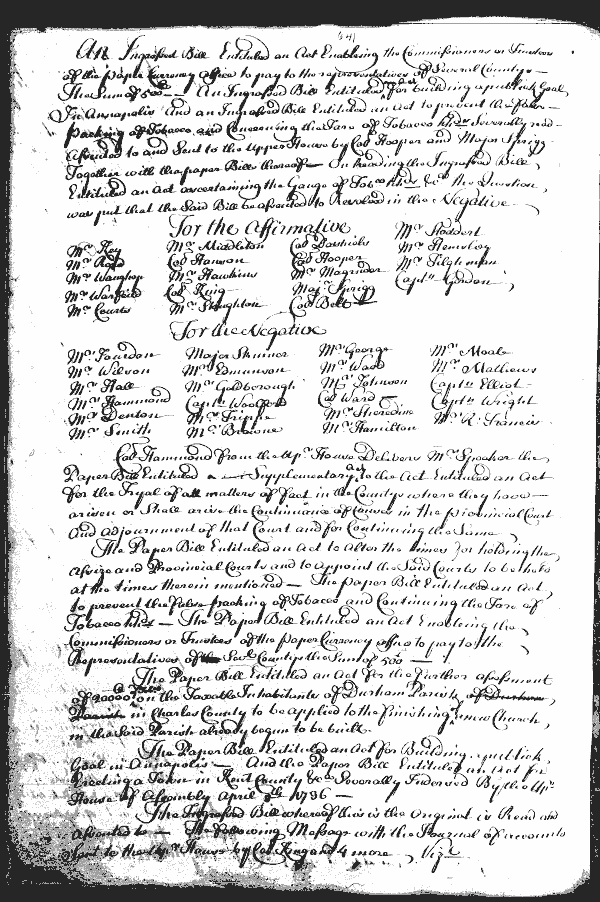 An Ingrossed Bill Entituled an Act Enableing the Commissioners or Trustees
of the Paper Currency Office to pay to the representatives of Several Countys
The Sum of 500 — An Ingrossed Bill Entituled for building a publick Goal
In Annapolis And an Ingrossed Bill Entituled an Act to prevent the false
packing of Tobacco and Concerning the Tare of Tobacco hhds Severally read
Assented to and Sent to the Upper House by Col Hooper and Major Sprigg
Together with the paper Bills thereof — On reading the Ingrossed Bill
Entituled an Act ascertaining the Gauge of Tobo hhds &c the Question
was put that the Said Bill be assented to Resolved in the Negative
For the Affirmative
Mr Key Mr Middleton Col Hanson Col Hooper Mr Stoddert
Mr Waughop Mr Hawkins Mr Magruder Mr Hemsley
Mr Warfield Col King Maj Sprigg Mr Tilghman
Mr Courts Mr Stoughton Col Belt Capt Gordon
For the Negative
Mr Jourdon Major Skinner Mr George Mr Moale
Mr Wilson Mr Edmunson Mr Ward Mr Mathews
Mr Hall Mr Goldborough Mr Johnson Capt Elliot
Mr Hammond Capt Woolford Col Ward Capt Wright
Mr Denton Mr Trippe Mr Sheredine Mr R. Francis
Mr Smith Mr Browne Mr Hamilton
Col Hammond from the Upr House Delivers Mr Speaker the
Paper Bill Entituled a Supplementary Act to the Act Entituled an Act
for the Tryal of all matters of fact in the Countys where they have
arisen or Shall arise the Continuance of Causes in the provincial Court
And adjournment of that Court and for Continuing the Same
The Paper Bill Entituled an Act to Alter the times for holding the
Assize and Provincial Courts and to appoint the Said Courts to be held
at the times therein mentioned — The Paper Bill Entituled an Act
to prevent the false packing of Tobacco and Continuing the Tare of
Tobacco hhds — The Paper Bill Entituled an Act Enableing the
Commissioners or Trustees of the Paper Currency office to pay to the
Representatives of the Sevl Countys the Sum of 500 —
The Paper Bill Entituled an Act for the further assessment
of 20000 on the Taxable Inhabitants of Durham Parish of Durham
Parish in Charles County to be applied to the finishing new Church
in the Said Parish already begun to be built
The Paper Bill Entituled an Act for Building a publick
Goal in Annapolis — And the Paper Bill Entituled an Act for
Erecting a Town in Kent County &c Severally Indorsed By the Upr
House of Assembly April 1736 —
The Ingrossed Bill whereof this is the Original is Read and
assented to — The following Message with the Journal of accounts
Sent to the Upr House by Col King and 4 more Vizt